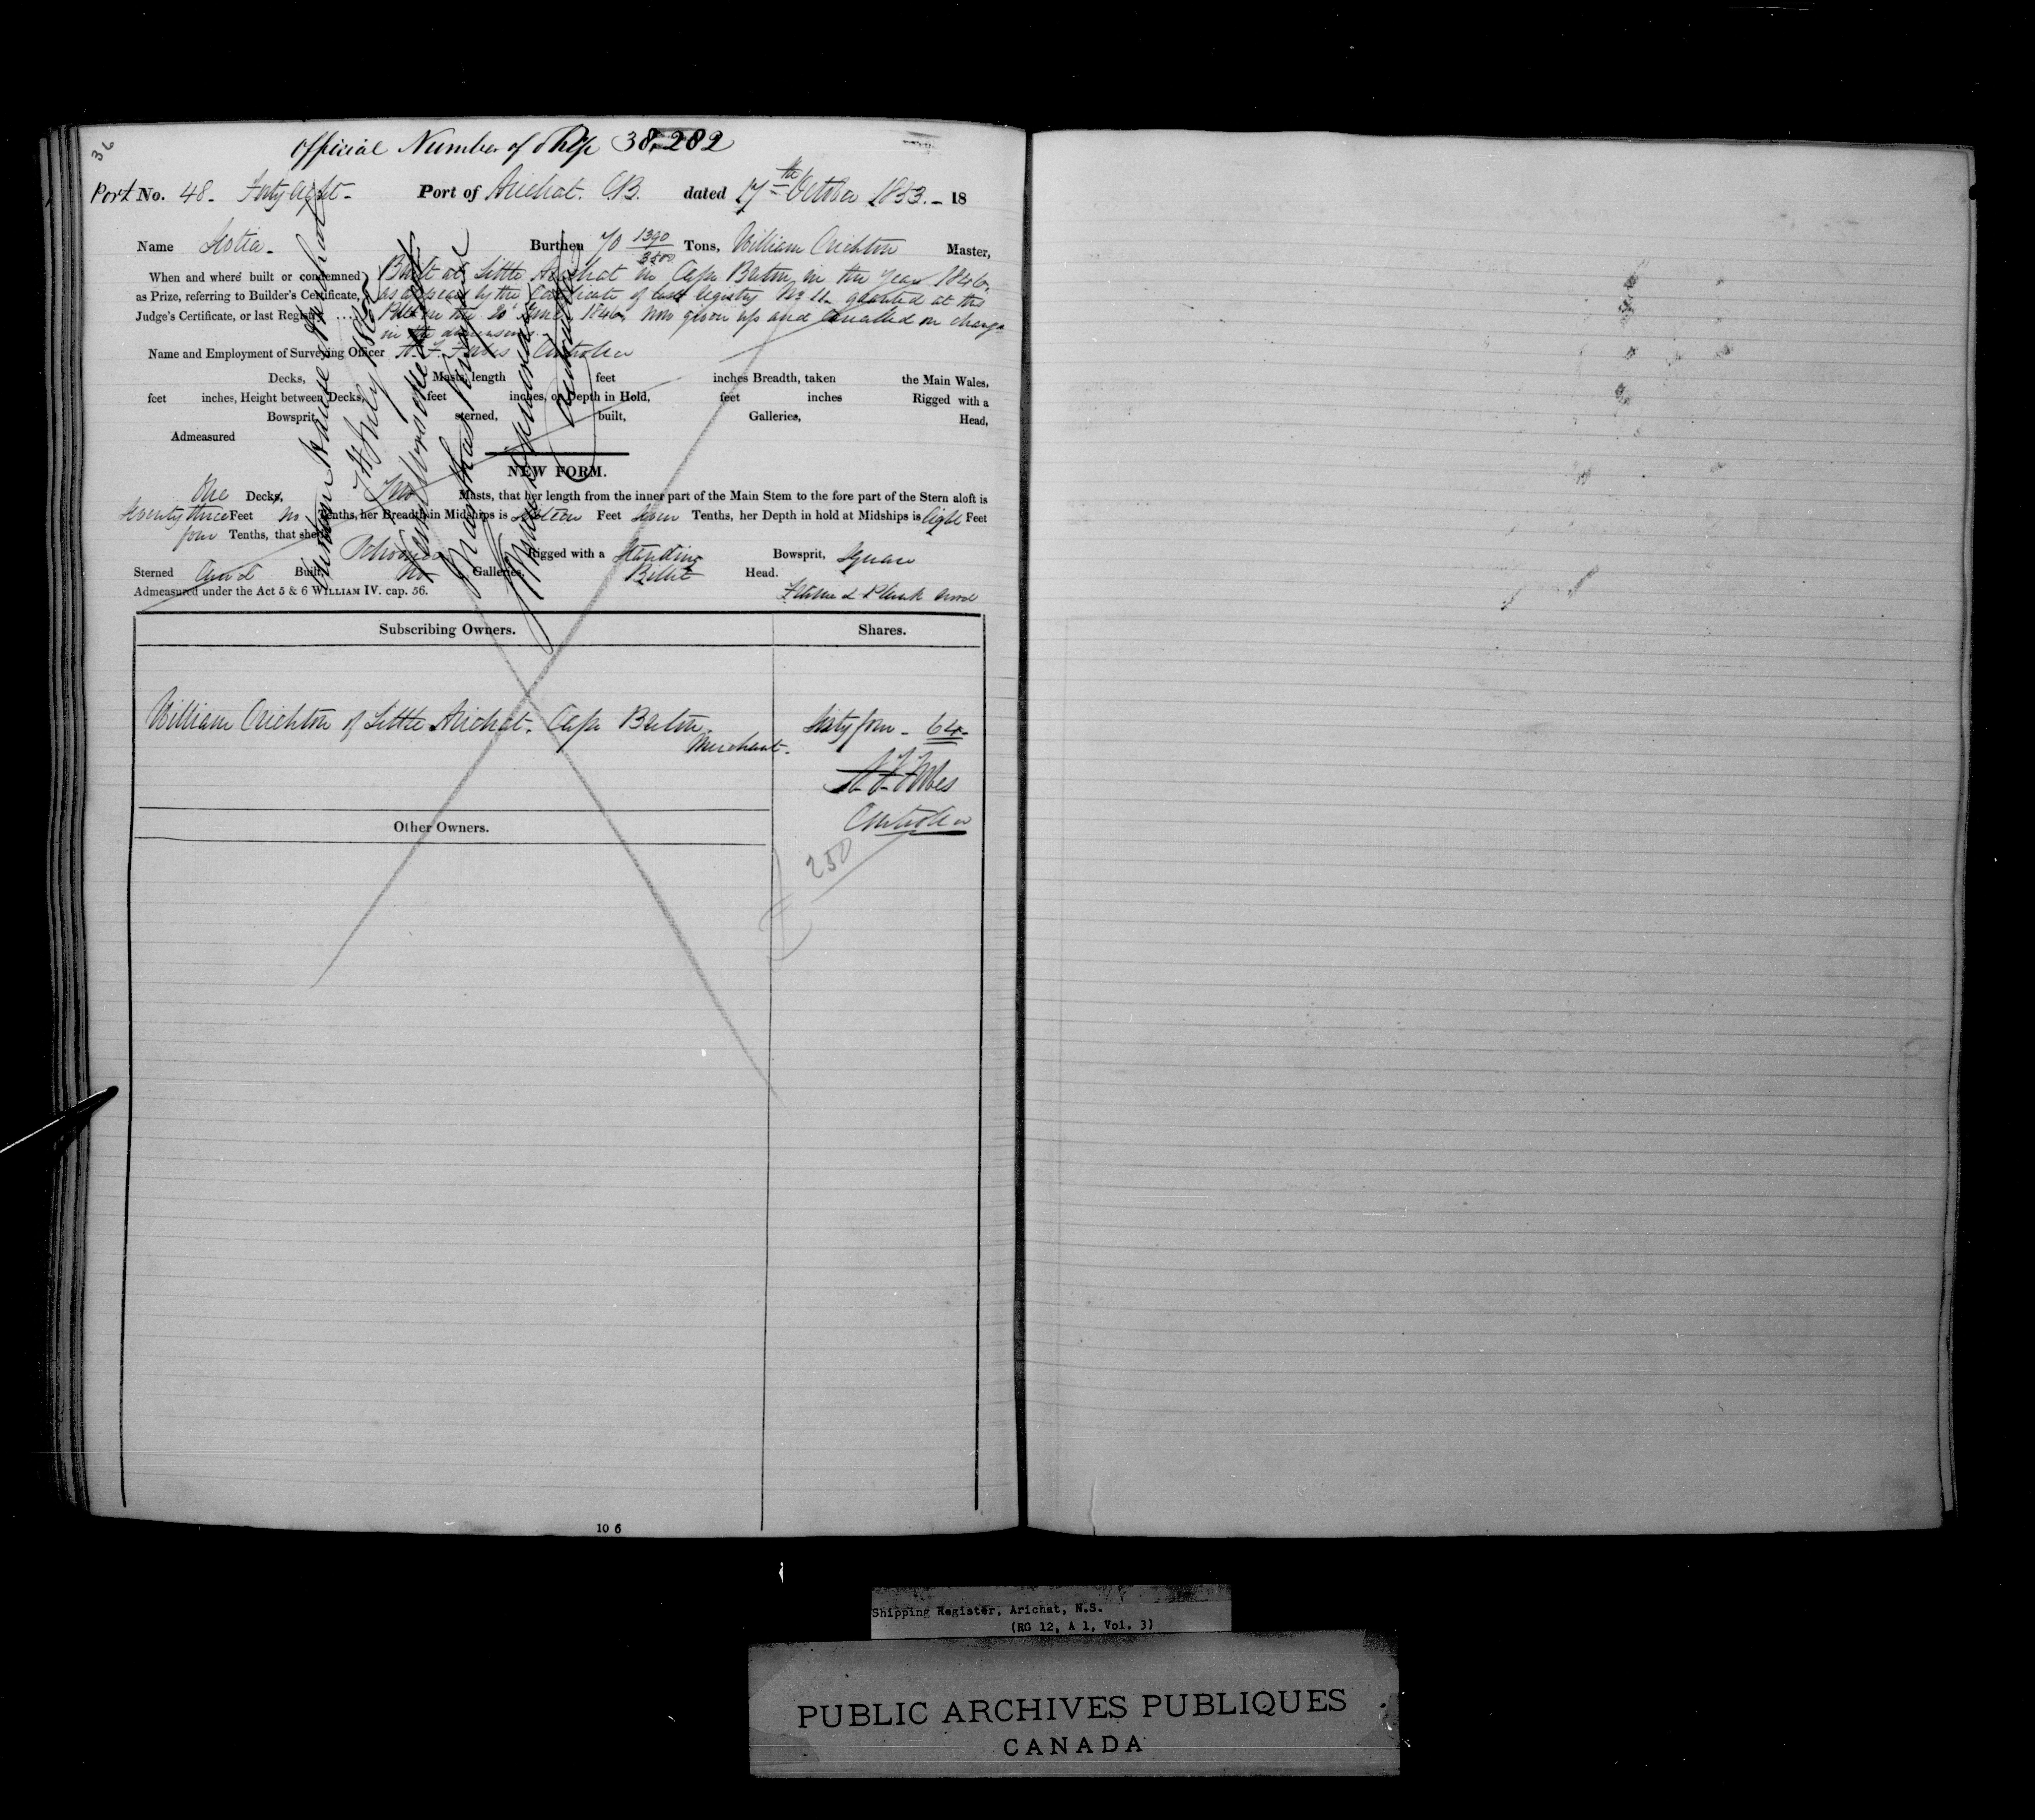 36
Official Number of Ship 38,282
Port No. 48 - Forty Eight - Port of Arichat. C.B. dated 17th October 1853. - 18
Name Scotia - Burthen 70 1390/3500 Tons, William Crichton Master,
When and where built or condemned Built at Little Arichat in Cape Breton in the year 1846.
as Prize, referring to Builder's Certificate, as appears by the Certificate of last Registry No 11 granted at this
Judge's Certificate, or last Registry .... Port on the 20 June 1846, now given up and Cancelled on change
in the dimensions.
Name and Employment of Surveying Officer Controller
Decks, Masts, length feet inches Breadth, taken the Main Wales,
feet inches, Height between Decks, feet inches, or Depth in Hold, feet inches Rigged with a
Bowsprit, sterned, built, Galleries, Head,
Admeasured
NEW FORM.
One Decks, Two Masts, that her length from the inner part of the Main Stem to the fore part of the Stern aloft is
Seventy three Feet no Tenths, her Breadth in Midships is Feet seven Tenths, her Depth in hold at Midships is Eight Feet
four Tenths, that she is Schooner Rigged with a Standing Bowsprit, Square
Sterned Carvel Built, No Galleries, Billet Head.
Admeasured under the Act 5 & 6 WILLIAM IV. cap. 56. Frame & Plank wood
Subscribing Owners. Shares.
William Crichton of Little Arichat. Cape Breton. Sixty four - 64 -
Merchant.
Forbes
Controller
Other Owners.
250
10 6
Shipping Register, Arichat, N.S.
(RG 12, A 1, Vol. 3)
PUBLIC ARCHIVES PUBLIQUES
CANADA